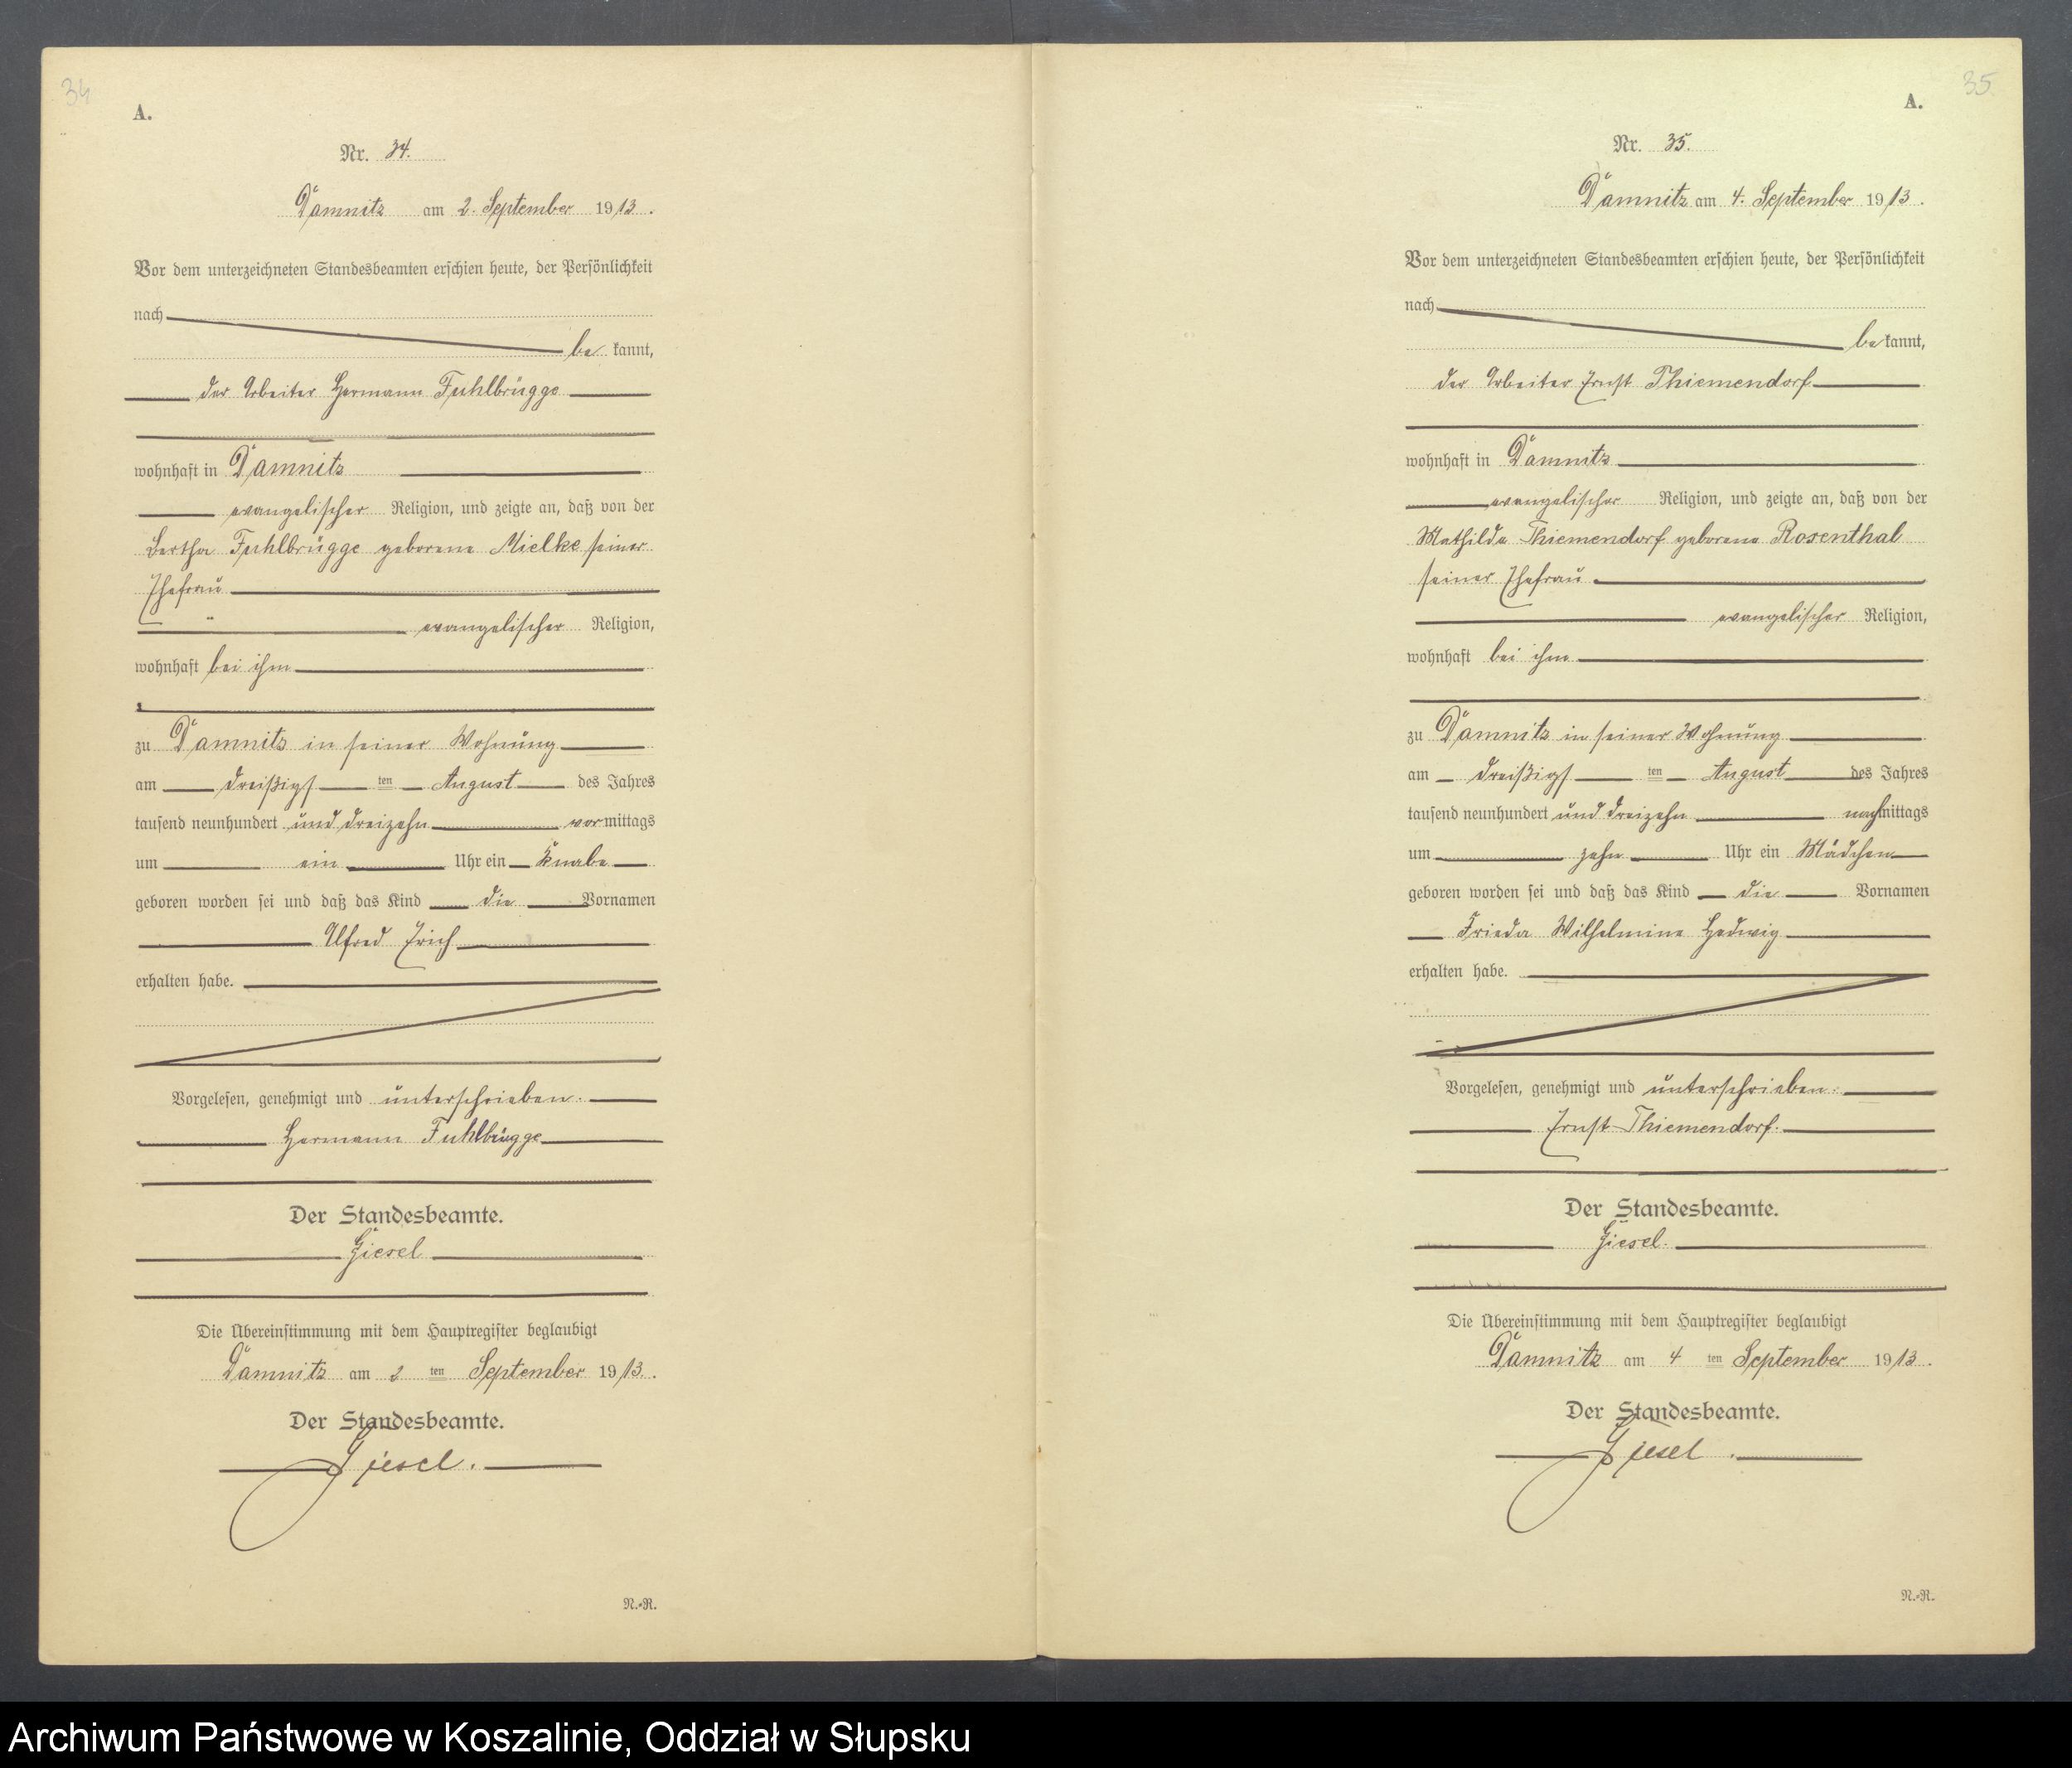 34
A.
Nr. 34.
Damnitz am 2. September 1913.
Vor dem unterzeichneten Standesbeamten erschien heute, der Persönlichkeit
nach
be kannt,
der Arbeiter Hermann Fuhlbrügge
wohnhaft in Damnitz
evangelischer Religion, und zeigte an, daß von der
Bertha Fuhlbrügge geborene Mielke seiner
Ehefrau
evangelischer Religion,
wohnhaft bei ihm
zu Damnitz in seiner Wohnung
am dreißigs ten August des Jahres
tausend neunhundert und dreizehn vormittags
um ein Uhr ein Knabe
geboren worden sei und daß das Kind die Vornamen
Alfred Erich
erhalten habe.
Vorgelesen, genehmigt und unterschrieben.
Hermann Fuhlbrügge
Der Standesbeamte.
Giesel
Die Übereinstimmung mit dem Hauptregister beglaubigt
Damnitz am 2 ten September 1913.
Der Standesbeamte.
Giesel.
N.-R.
35
A.
Nr. 35.
Damnitz am 4. September 1913.
Vor dem unterzeichneten Standesbeamten erschien heute, der Persönlichkeit
nach
be kannt,
der Arbeiter Ernst Thiemendorf
wohnhaft in Damnitz
evangelischer Religion, und zeigte an, daß von der
Mathilde Thiemendorf geborene Rosenthal
seiner Ehefrau
evangelischer Religion,
wohnhaft bei ihm
zu Damnitz in seiner Wohnung
am dreißigs ten August des Jahres
tausend neunhundert und dreizehn nachmittags
um zehn Uhr ein Mädchen
geboren worden sei und daß das Kind die Vornamen
Frieda Wilhelmine Hedwig
erhalten habe.
Vorgelesen, genehmigt und unterschrieben.
Ernst Thiemendorf.
Der Standesbeamte.
Giesel.
Die Übereinstimmung mit dem Hauptregister beglaubigt
Damnitz am 4 ten September 1913.
Der Standesbeamte.
Giesel.
N.-R.
Archiwum Państwowe w Koszalinie, Oddział w Słupsku